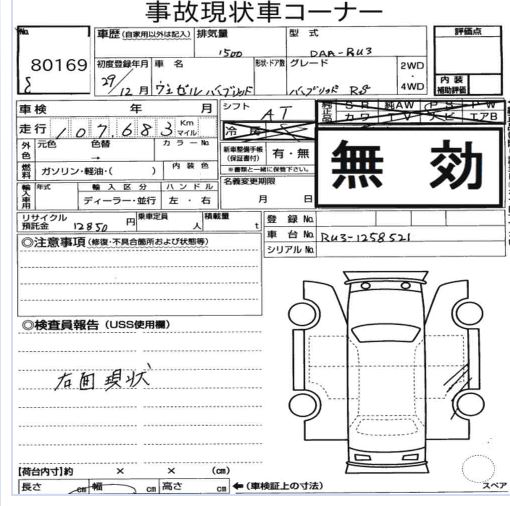 事故現状車コーナー
No.
80169
車歴 (自家用以外は記入)
排気量
1500
型式
DAA-RU3
評価点
初度登録年月
29/12月
車名
ヴェゼルハイブリッド
形状・ドア数
グレード
ハイブリッド RS
2WD
・
4WD
内装
補助評価
車検 年 月
シフト
AT
走行 107,683 Km マイル
冷房
無効
外色
元色
色替
→
カラーNo.
新車整備手帳
(保証書付)
有・無
※書類と一緒に保管下さい。
燃料
ガソリン・軽油・( )
内装色
名義変更期限
月 日
輸入車用
年式
輸入区分
ディーラー・並行
ハンドル
左・右
リサイクル
預託金
12850 円
乗車定員
人
積載量
t
登録No.
車台No.
RU3-1258521
シリアルNo.
◎注意事項 (修復・不具合箇所および状態等)
◎検査員報告 (USS使用欄)
右面現状
【荷台内寸】約 × × (cm)
長さ cm 幅 cm 高さ cm
←(車検証上の寸法)
スペア